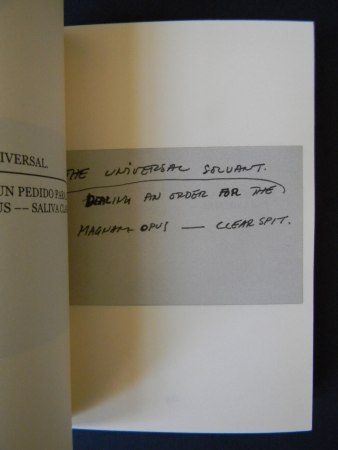 IVERSAL.
UN PEDIDO PARA
US –– SALIVA CLA
THE UNIVERSAL SOLVANT.
AN ORDER FOR THE
MAGNUM OPUS — CLEAR SPIT.